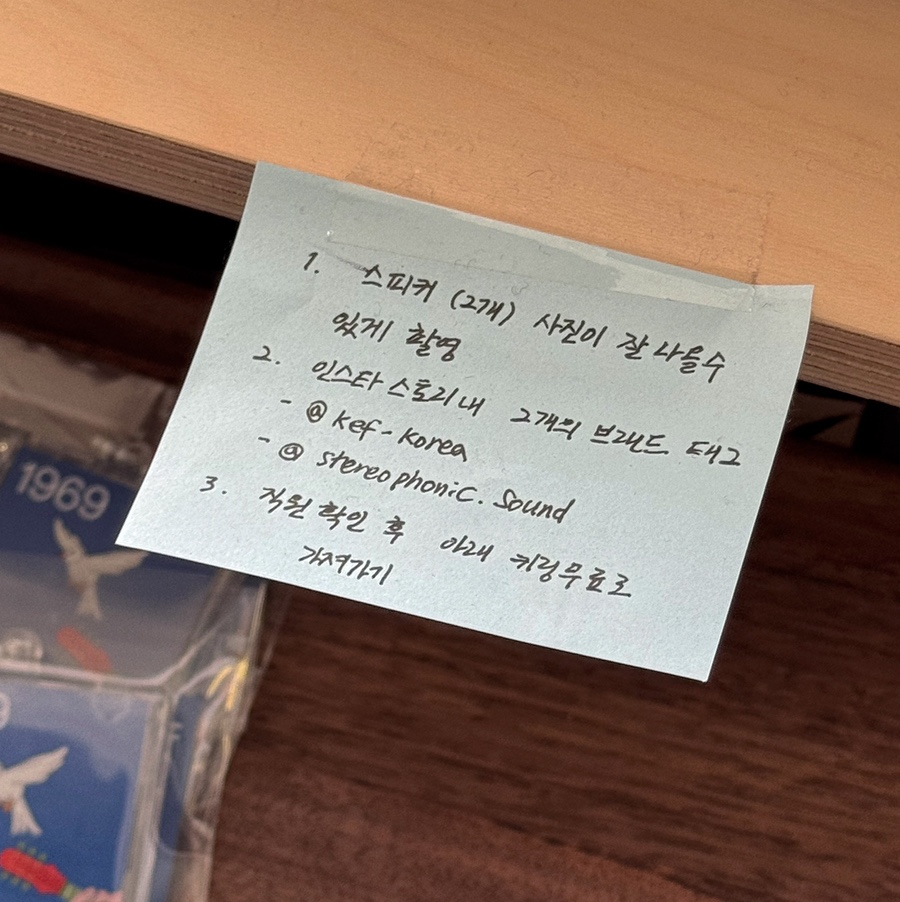 1. 스피커 (2개) 사진이 잘 나올수
있게 촬영
2. 인스타 스토리 내 2개의 브랜드 태그
- @ kef-korea
- @ stereophonic. sound
3. 직원 확인 후 아래 키링 무료로
가져가기
1969
9